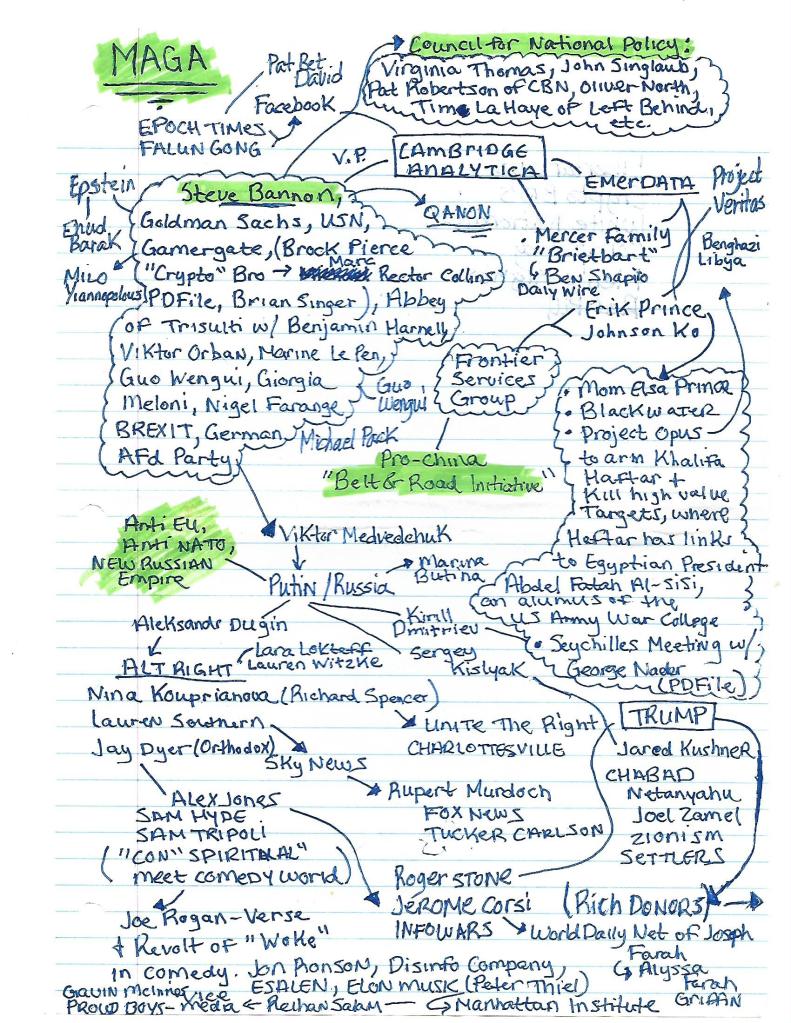 MAGA
Pat Bet
David
Facebook
EPOCH TIMES
FALUN GONG
Council for National Policy:
Virginia Thomas, John Singlaub,
Pat Robertson of CBN, Olliver North,
Tim La Haye of Left Behind,
etc.
V.P.
CAMBRIDGE
ANALYTICA
EMERDATA
Project
Veritas
Benghazi
Libya
Epstein
Ehud
Barak
Milo
Yiannopolous
Steve Bannon,
Goldman Sachs, USN,
Gamergate, (Brock Pierce
"Crypto" Bro → Marc Rector Collins
PDFile, Brian Singer), Abbey
of Trisulti w/ Benjamin Harnell,
Viktor Orban, Marine Le Pen,
Guo Wengui, Giorgia
Meloni, Nigel Farange
BREXIT, German
AFd Party
Guo
Wengui
Michael Pack
QANON
• Mercer Family
"Brietbart"
Ben Shapiro
Daily Wire
Erik Prince
Johnson Ko
Frontier
Services
Group
Pro-China
"Belt & Road Initiative"
• Mom Elsa Prince
• Blackwater
• Project Opus
to arm Khalifa
Haftar +
Kill high value
Targets, where
Haftar has links
to Egyptian President
Abdel Fatah Al-Sisi,
an alumus of the
US Army War College
• Seychilles Meeting w/
George Nader
(PDFile)
Anti EU,
Anti NATO,
NEW RUSSIAN
Empire
Viktor Medvedchuk
Putin/Russia
Marina
Butina
Kirill
Dmitriev
Sergey
Kislyak
Aleksandr Dugin
ALT RIGHT
Lara Lokteff
Lauren Witzke
Nina Kouprianova (Richard Spencer)
Lauren Southern
Jay Dyer (Orthodox)
Unite The Right
CHARLOTTESVILLE
Sky News
Rupert Murdoch
FOX NEWS
TUCKER CARLSON
TRUMP
Jared Kushner
CHABAD
Netanyahu
Joel Zamel
ZIONISM
SETTLERS
Alex Jones
SAM HYDE
SAM TRIPOLI
("CON" SPIRITALAL"
meet comedy world)
Roger Stone
Jerome Corsi
INFOWARS
(Rich DONORS)
World Daily Net of Joseph
Farah
Alyssa
Farah
Griffin
Joe Rogan-Verse
+ Revolt of "Woke"
in comedy. Jon Ronson, Disinfo Company,
ESALEN, ELON MUSK (Peter Thiel)
Gavin McInnes
PROUD BOYS - Vice Media ← Reihan Salam — Manhattan Institute